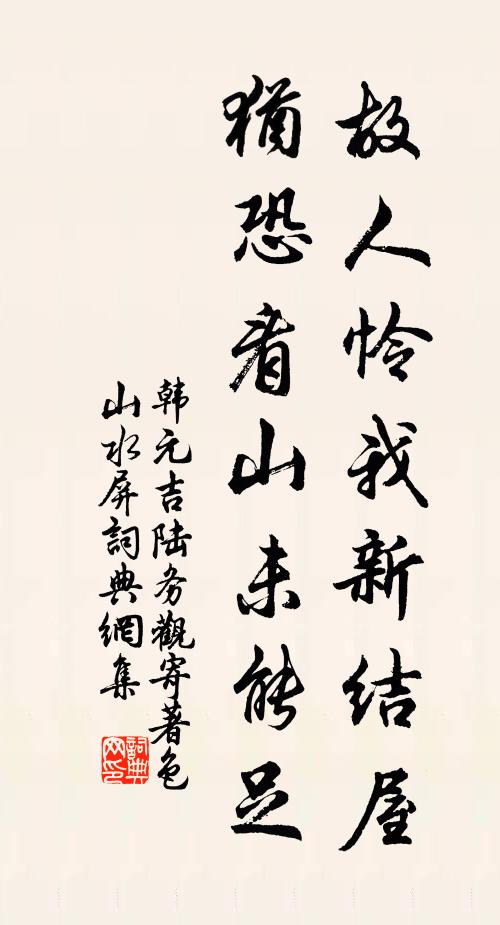 故人怜我新结屋
猶恐看山未能足
韩元吉陆务觀寄著色
山水屏詞典網集
詞典网印